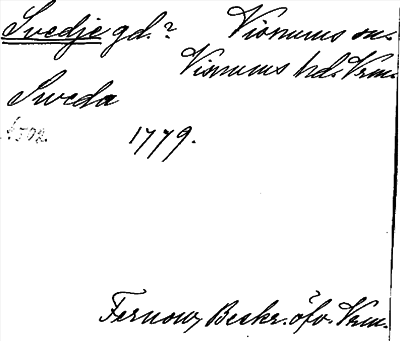 Svedje gd.? Visnums sn.
Visnums hd. Vrm.
Sweda
1779.
Fernow, Beskr. öfv. Vrm.